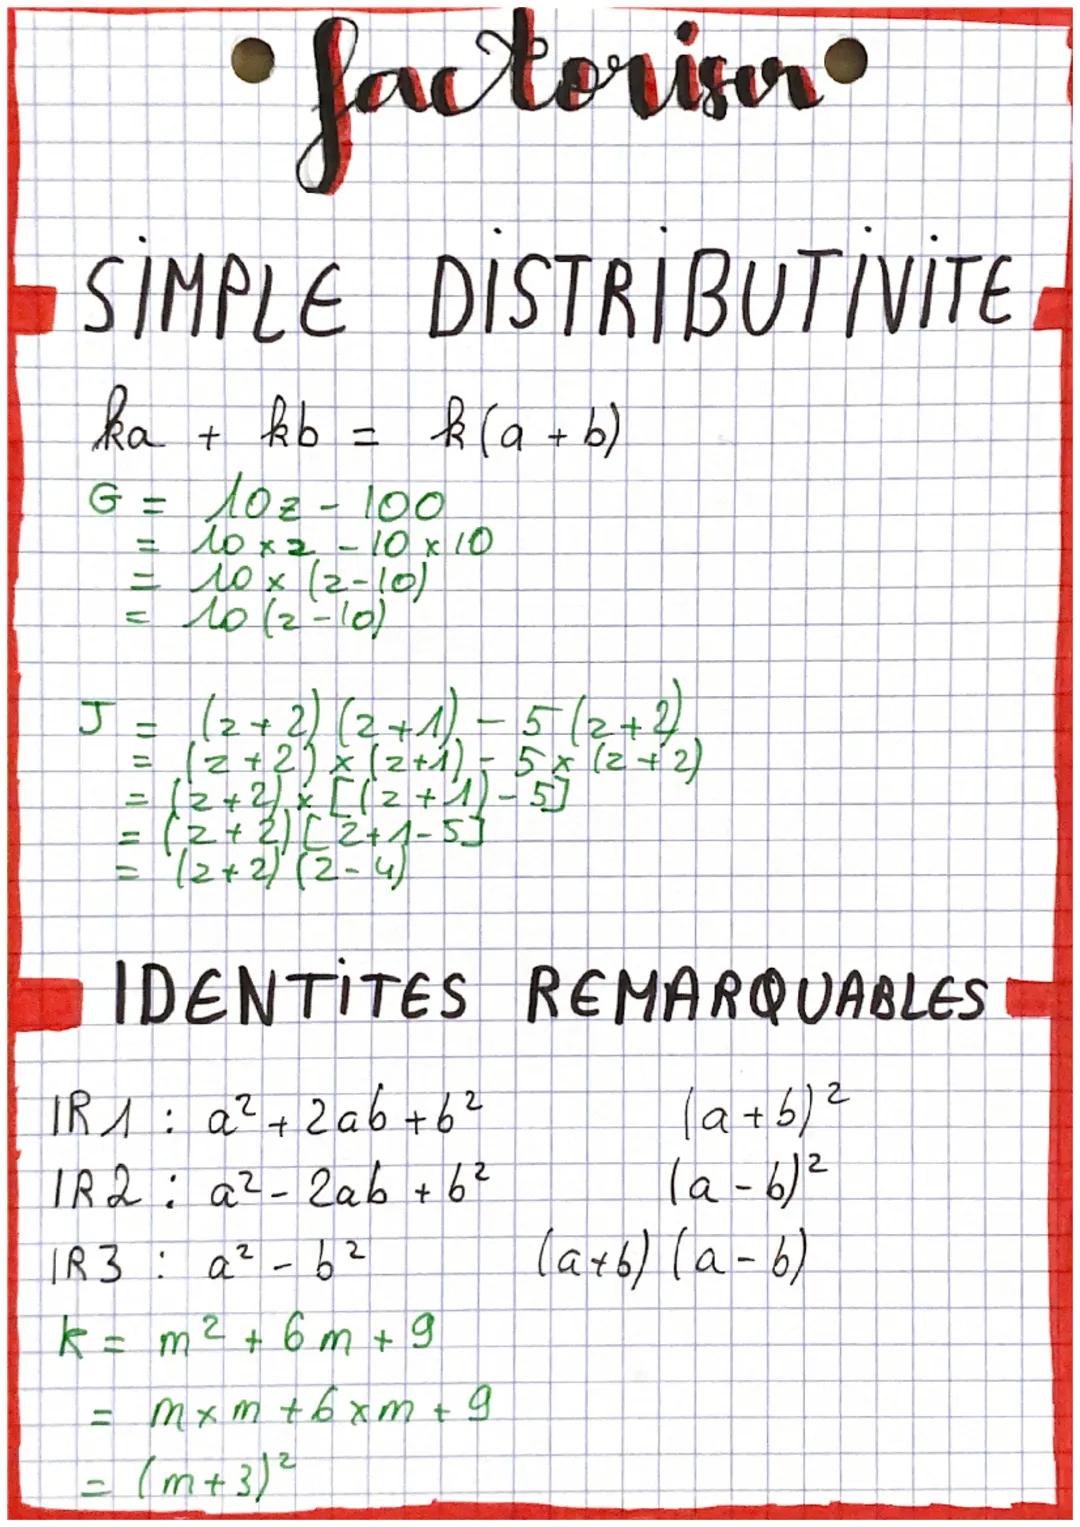 factoriser
SIMPLE DISTRIBUTIVITE
ka + kb = k(a + b)
G = 10z - 100
= 10 × z - 10 × 10
= 10 × (z - 10)
= 10 (z - 10)
J = (z + 2) (z + 1) - 5 (z + 2)
= (z + 2) × (z + 1) - 5 × (z + 2)
= (z + 2) × [(z + 1) - 5]
= (z + 2) [z + 1 - 5]
= (z + 2) (z - 4)
IDENTITES REMARQUABLES
IR1 : a² + 2ab + b² (a + b)²
IR2 : a² - 2ab + b² (a - b)²
IR3 : a² - b² (a + b) (a - b)
k = m² + 6m + 9
= m × m + 6 × m + 9
= (m + 3)²